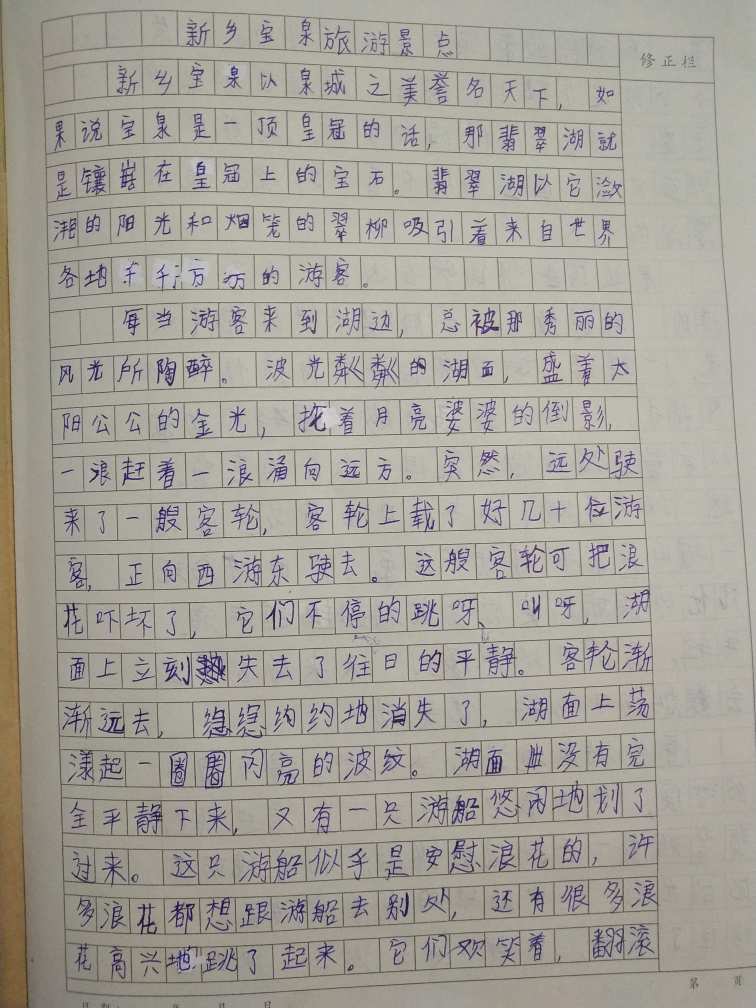 新乡宝泉旅游景点
修正栏
新乡宝泉以泉城之美誉名天下，如
果说宝泉是一顶皇冠的话，那翡翠湖就
是镶嵌在皇冠上的宝石。翡翠湖以它潋
滟的阳光和烟笼的翠柳吸引着来自世界
各地千千万万的游客。
每当游客来到湖边，总被那秀丽的
风光所陶醉。波光粼粼的湖面，盛着太
阳公公的金光，拖着月亮婆婆的倒影，
一浪赶着一浪涌向远方。突然，远处驶
来了一艘客轮，客轮上载了好几十位游
客，正向西游东驶去。这艘客轮可把浪
花吓坏了，它们不停的跳呀、叫呀，湖
面上立刻失去了往日的平静。客轮渐
渐远去，隐隐约约地消失了，湖面上荡
漾起一圈圈闪亮的波纹。湖面没有完
全平静下来，又有一只游船悠闲地划了
过来。这只游船似乎是安慰浪花的，许
多浪花都想跟游船去别处，还有很多浪
花高兴地跳了起来。它们欢笑着，翻滚
第 页